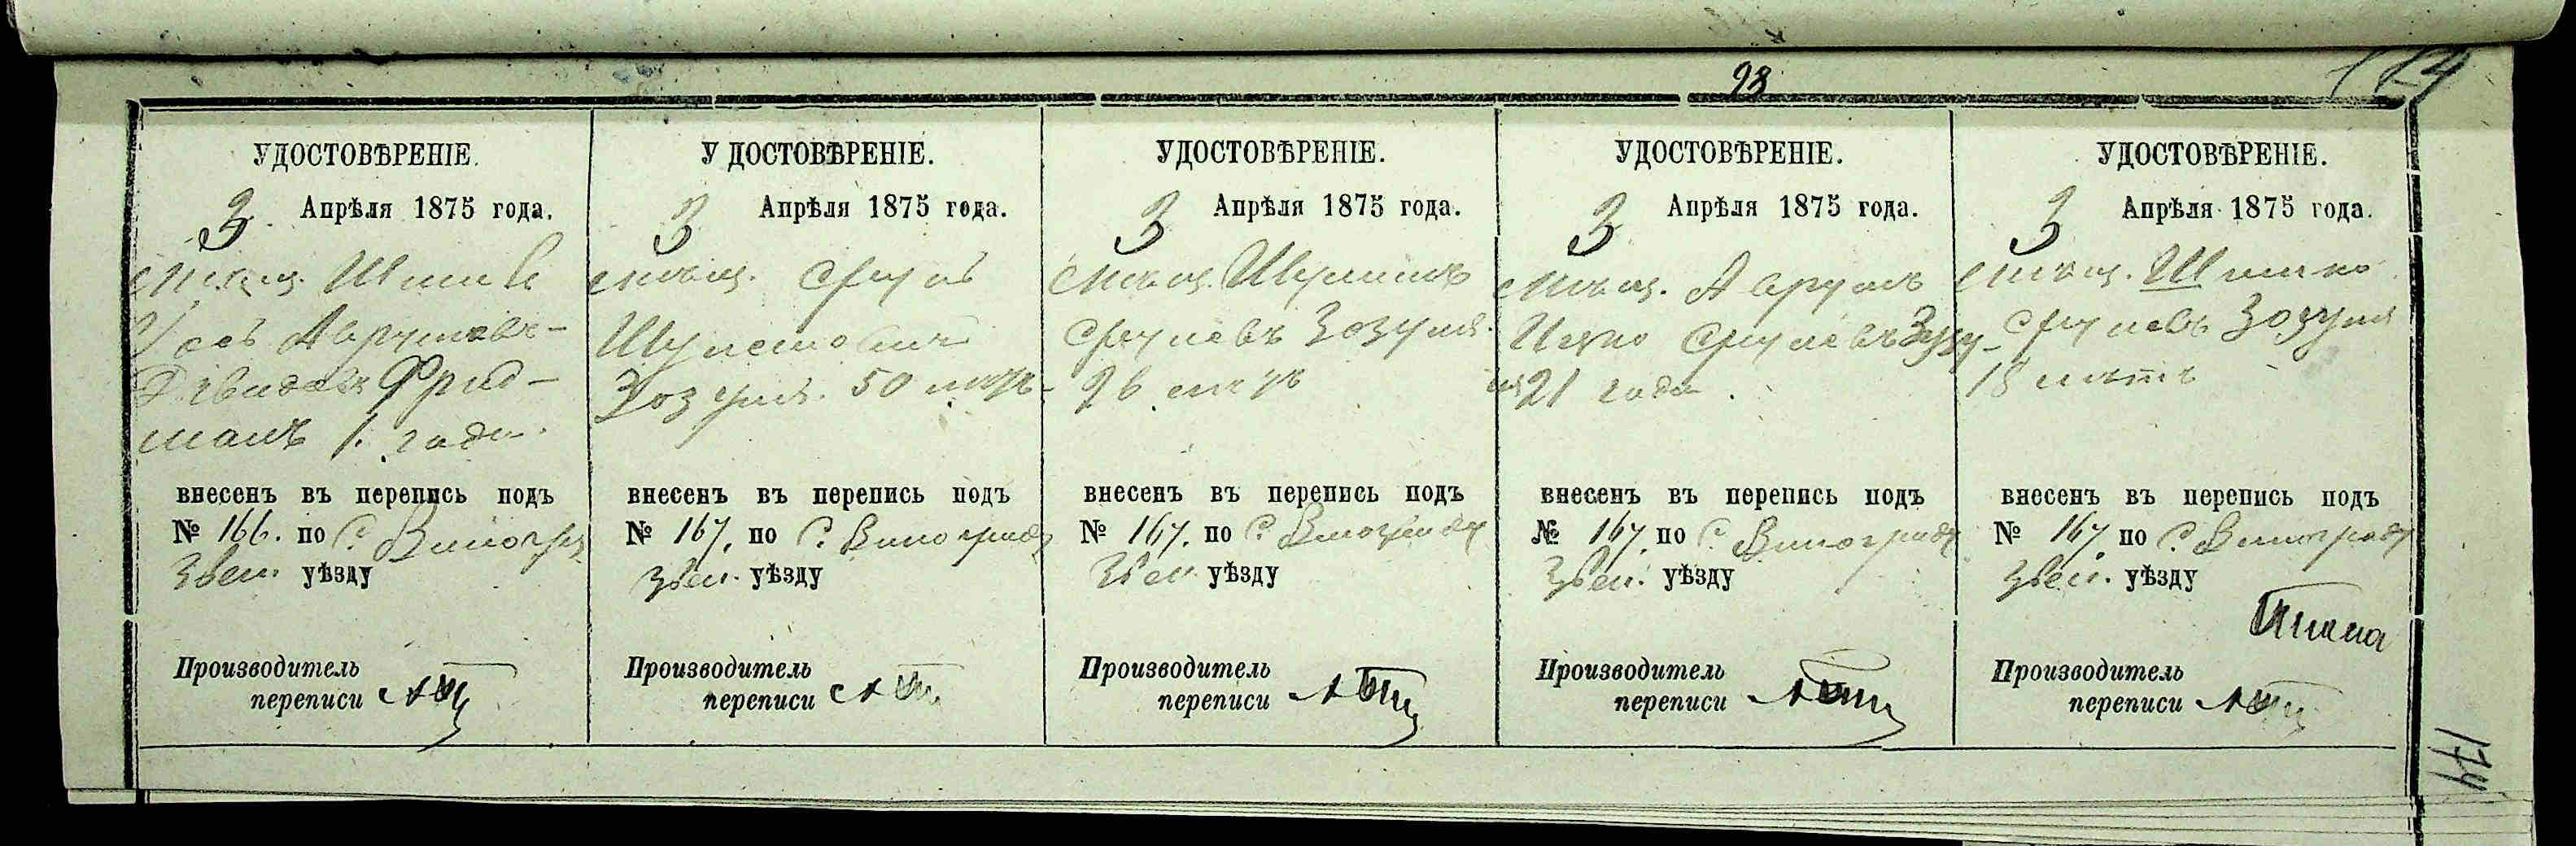 98
174
УДОСТОВѢРЕНІЕ.
3 Апрѣля 1875 года.
Мѣщ.
Аврумовъ-
Фрид-
манъ 1. года.
внесенъ въ перепись подъ
№ 166. по С. Виногр
Звен. уѣзду
Производитель
переписи
УДОСТОВѢРЕНІЕ.
3 Апрѣля 1875 года.
Мѣщ. Сруль
Зозуля. 50 лѣтъ
внесенъ въ перепись подъ
№ 167. по С. Винограду
Звен. уѣзду
Производитель
переписи
УДОСТОВѢРЕНІЕ.
3 Апрѣля 1875 года.
Мѣщ. Шулимъ
Срулевъ Зозуля.
26 лѣтъ
внесенъ въ перепись подъ
№ 167. по С. Винограду
Звен. уѣзду
Производитель
переписи
УДОСТОВѢРЕНІЕ.
3 Апрѣля 1875 года.
Мѣщ. Аврумъ
Ицко Срулевъ Зозу-
ля 21 года.
внесенъ въ перепись подъ
№ 167. по С. Винограду
Звен. уѣзду
Производитель
переписи
УДОСТОВѢРЕНІЕ.
3 Апрѣля 1875 года.
Мѣщ.
Срулевъ Зозуля
18 лѣтъ
внесенъ въ перепись подъ
№ 167 по С. Винограду
Звен. уѣзду
Производитель
переписи
174